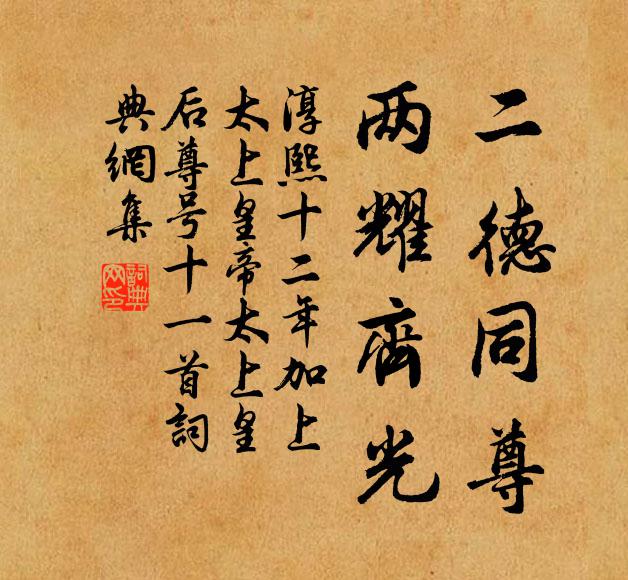 二德同尊
两耀齊光
淳熙十二年加上
太上皇帝太上皇
后尊号十一首詞
典網集
詞典網印